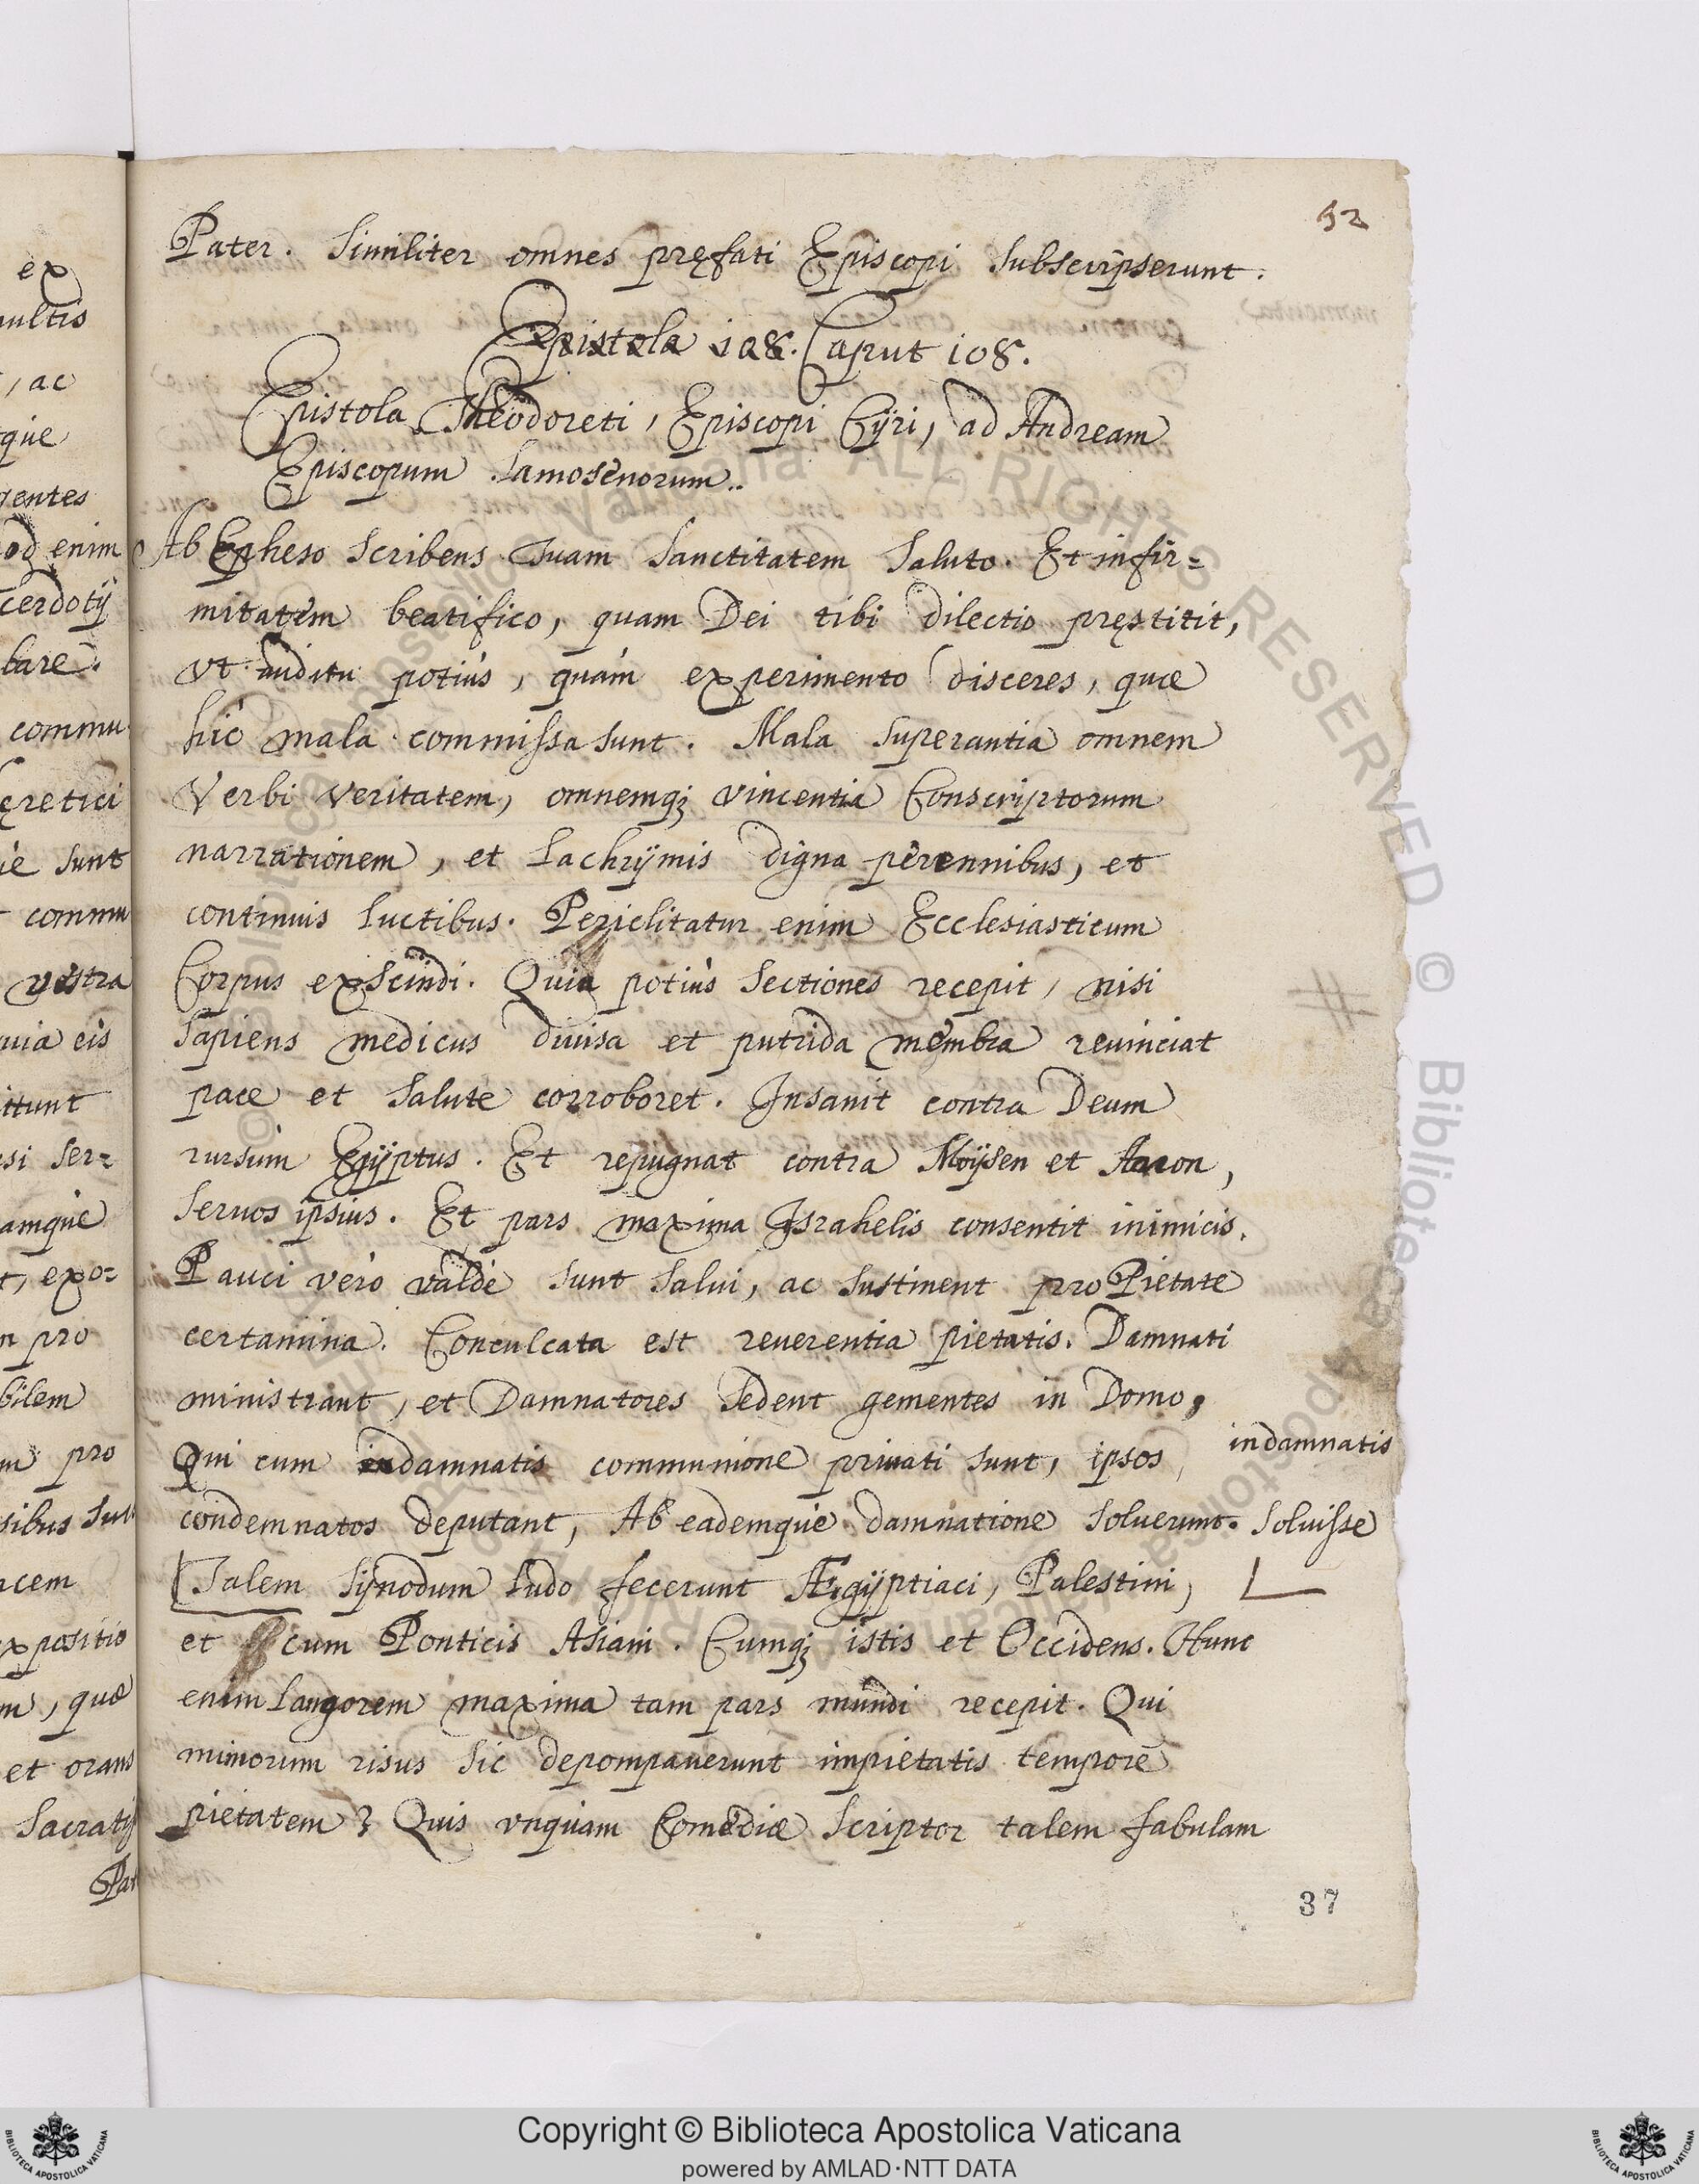 52
Pater. Similiter omnes pręfati Episcopi subscripserunt.
Epistola 108. Caput 108.
Epistola Theodoreti, Episcopi Cÿri, ad Andream
Episcopum Samosenorum.
Ab Epheso scribens tuam Sanctitatem saluto. Et infir=
mitatem beatifico, quam Dei tibi dilectio pręstitit,
vt auditu potiùs, quàm experimento disceres, quæ
hìc mala commissa sunt. Mala superantia omnem
Verbi veritatem, omnemq; vincentia Conscriptorum
narrationem, et Lachrÿmis digna perennibus, et
continuis luctibus. Periclitatur enim Ecclesiasticum
Corpus exscindi. Quia potiùs sectiones recepit, nisi
sapiens medicus diuisa et putrida membra reuinciat
pace et salute corroboret. Insanit contra Deum
rursùm Egÿptus. Et repugnat contra Moÿsen et Aaron,
seruos ipsius. Et pars maxima Israhelis consentit inimicis.
Pauci verò valdè sunt salui, ac sustinent pro Pietate
certamina. Conculcata est reuerentia pietatis. Damnati
ministrant, et Damnatores sedent gementes in Domo,
Qui cum indamnatis communione priuati sunt, ipsos
indamnatis
condemnatos deputant, Ab eademque damnatione soluerunt.
soluisse
Talem sÿnodum ludo fecerunt Ægÿptiaci, Palestini,
et cum Ponticis Asiani. Cumq; istis et Occidens. Hunc
enim Langorem maxima tam pars mundi recepit. Qui
mimorum risus sic depompauerunt impietatis tempore
pietatem? Quis vnquam Comediæ scriptor talem fabulam
37
ex
, ac
que
gentes
enim
bare.
commu
sunt
commu
vestra
eis
ser=
amque
, exo=
pro
bilem
pro
, quæ
et orans
Pat
Copyright © Biblioteca Apostolica Vaticana
powered by AMLAD·NTT DATA